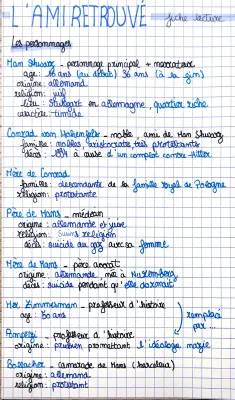 L'AMI RETROUVÉ fiche lecture
Les personnages
Hans Shwarz - personnage principal + narrateur
age: 16 ans (au début) 36 ans (à la fin)
origine: allemand
religion: juif
lieu: Stuttgart en allemagne, quartier riche
caractère: timide
Conrad von Hohenfels - noble, ami de Hans Shwarz
famille: nobles, aristocrate très protestante
décès: 1944 à cause d'un complot contre Hitler
Mère de Conrad
famille: descendante de la famille royal de Pologne
religion: protestante
Père de Hans - médecin
origine: allemande et juive
religion: sans religion
décès: suicide au gaz avec sa femme
Mère de Hans - père avocat
origine: allemande, née à Nuremberg
décès: suicide pendant qu'elle dormait
Herr Zimmermann - professeur d'histoire
age: 50 ans
remplacé
par ...
Pompetzki - professeur d'histoire
origine: prussien promettant l'idéologie nazie
Bollacher - camarade de Hans (harceleur)
origine: allemand
religion: protestant